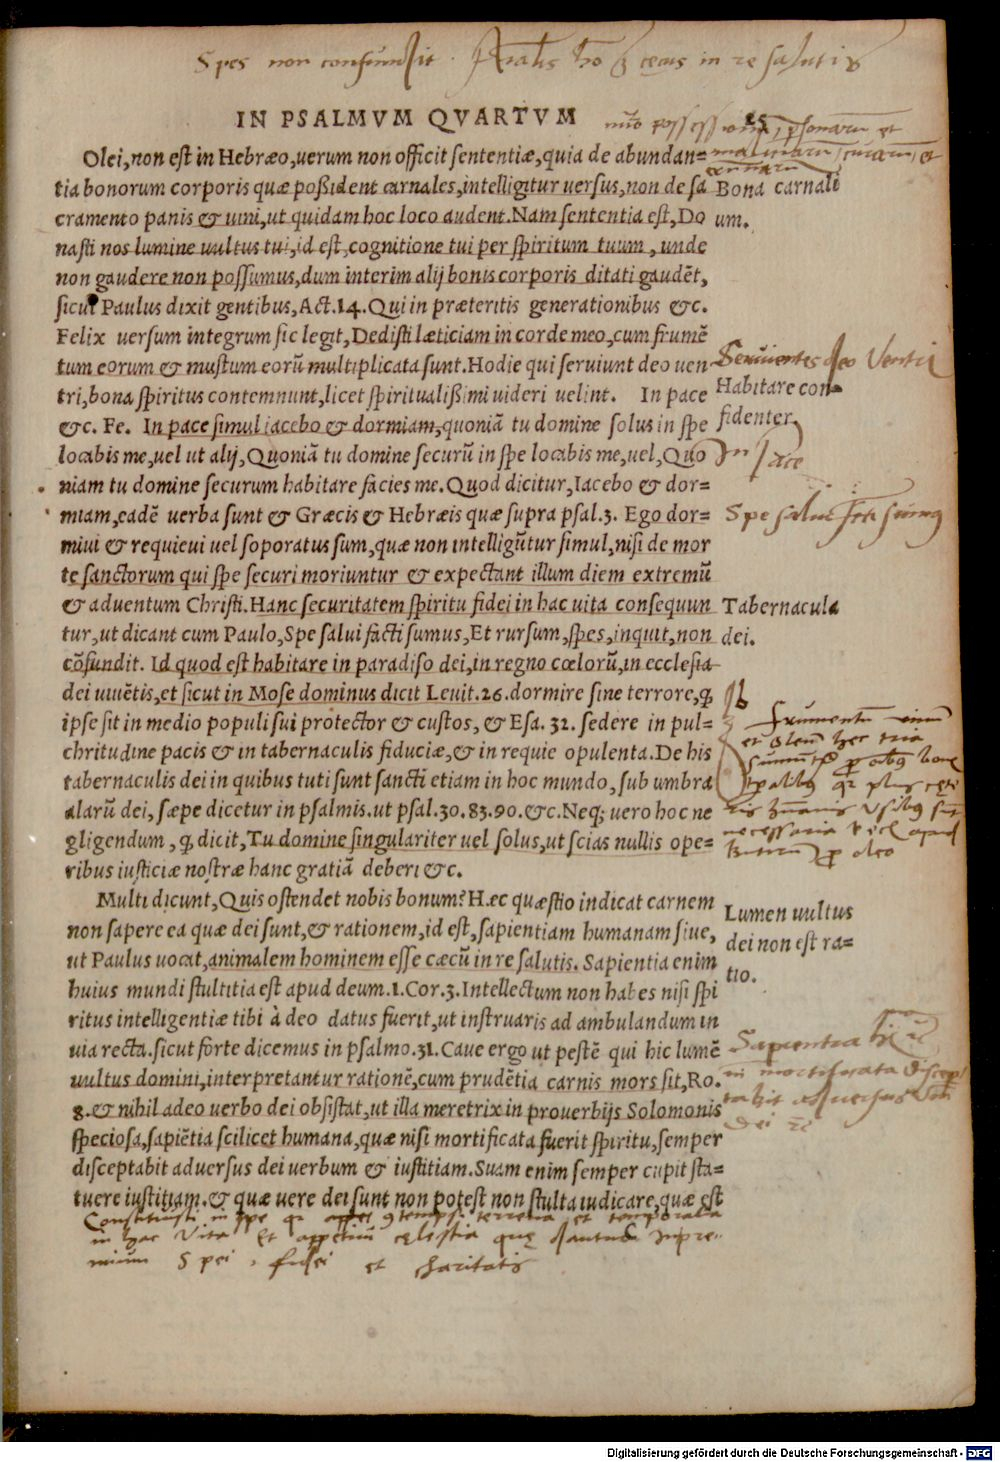 Spes non confundit. homo cecus in re salutis
IN PSALMVM QVARTVM 25
possessionum, personarum et
Olei, non est in Hebræo, uerum non officit sententiæ, quia de abundan=
tia bonorum corporis quæ poßident carnales, intelligitur uersus, non de sa Bona carnali
cramento panis & uini, ut quidam hoc loco audent. Nam sententia est, Do um.
nasti nos lumine uultus tui, id est, cognitione tui per spiritum tuum, unde
non gaudere non possumus, dum interim alij bonis corporis ditati gaudẽt,
sicut Paulus dixit gentibus, Act. 14. Qui in præteritis generationibus &c.
Felix uersum integrum sic legit, Dedisti læticiam in corde meo, cum frumẽ
tum eorum & mustum eorũ multiplicata sunt. Hodie qui seruiunt deo uen
Seruientes deo Ventri
tri, bona spiritus contemnunt, licet spiritualißimi uideri uelint. In pace Habitare con=
&c. Fe. In pace simul iacebo & dormiam, quoniã tu domine solus in spe fidenter.
locabis me, uel ut alij, Quoniã tu domine securũ in spe locabis me, uel, Quo
In pace
niam tu domine securum habitare facies me. Quod dicitur, Iacebo & dor=
miam, eadẽ uerba sunt & Græcis & Hebræis quæ supra psal. 3. Ego dor=
Spe salui facti sumus
miui & requieui uel soporatus sum, quæ non intelligũtur simul, nisi de mor
te sanctorum qui spe securi moriuntur & expectant illum diem extremũ
& aduentum Christi. Hanc securitatem spiritu fidei in hac uita consequun Tabernacula
tur, ut dicant cum Paulo, Spe salui facti sumus, Et rursum, spes, inquit, non dei.
cõfundit. Id quod est habitare in paradiso dei, in regno cœlorũ, in ecclesia
dei uiuẽtis, et sicut in Mose dominus dicit Leuit. 26. dormire sine terrore, ꝙ
ipse sit in medio populi sui protector & custos, & Esa. 32. sedere in pul=
chritudine pacis & in tabernaculis fiduciæ, & in requie opulenta. De his
tabernaculis dei in quibus tuti sunt sancti etiam in hoc mundo, sub umbra
alarũ dei, sæpe dicetur in psalmis. ut psal. 30. 83. 90. &c. Neq; uero hoc ne
gligendum, ꝙ dicit, Tu domine singulariter uel solus, ut scias nullis ope=
ribus iusticiæ nostræ hanc gratiã deberi &c.
Frumentum vinum
et oleum hec tria
necessaria
pro oleo
Multi dicunt, Quis ostendet nobis bonum? Hæc quæstio indicat carnem Lumen uultus
non sapere ea quæ dei sunt, & rationem, id est, sapientiam humanam siue, dei non est ra=
ut Paulus uocat, animalem hominem esse cæcũ in re salutis. Sapientia enim tio.
huius mundi stultitia est apud deum. 1. Cor. 3. Intellectum non habes nisi spi
ritus intelligentiæ tibi à deo datus fuerit, ut instruaris ad ambulandum in
uia recta. sicut forte dicemus in psalmo. 31. Caue ergo ut pestẽ qui hic lumẽ
uultus domini, interpretantur rationẽ, cum prudẽtia carnis mors sit, Ro.
8. & nihil adeo uerbo dei obsistat, ut illa meretrix in prouerbijs Solomonis
speciosa, sapiẽtia scilicet humana, quæ nisi mortificata fuerit spiritu, semper
disceptabit aduersus dei uerbum & iustitiam. Suam enim semper cupit sta=
tuere iustitiam. & quæ uere dei sunt non potest non stulta iudicare, quæ est
Sapientia
mortificata discep
tabit adversus
Dei
Constituisti in spe terrena et temporalia
in hac Vita Et celestia que dantur in pre
mium Spei, fidei et charitatis
Digitalisierung gefördert durch die Deutsche Forschungsgemeinschaft - DFG